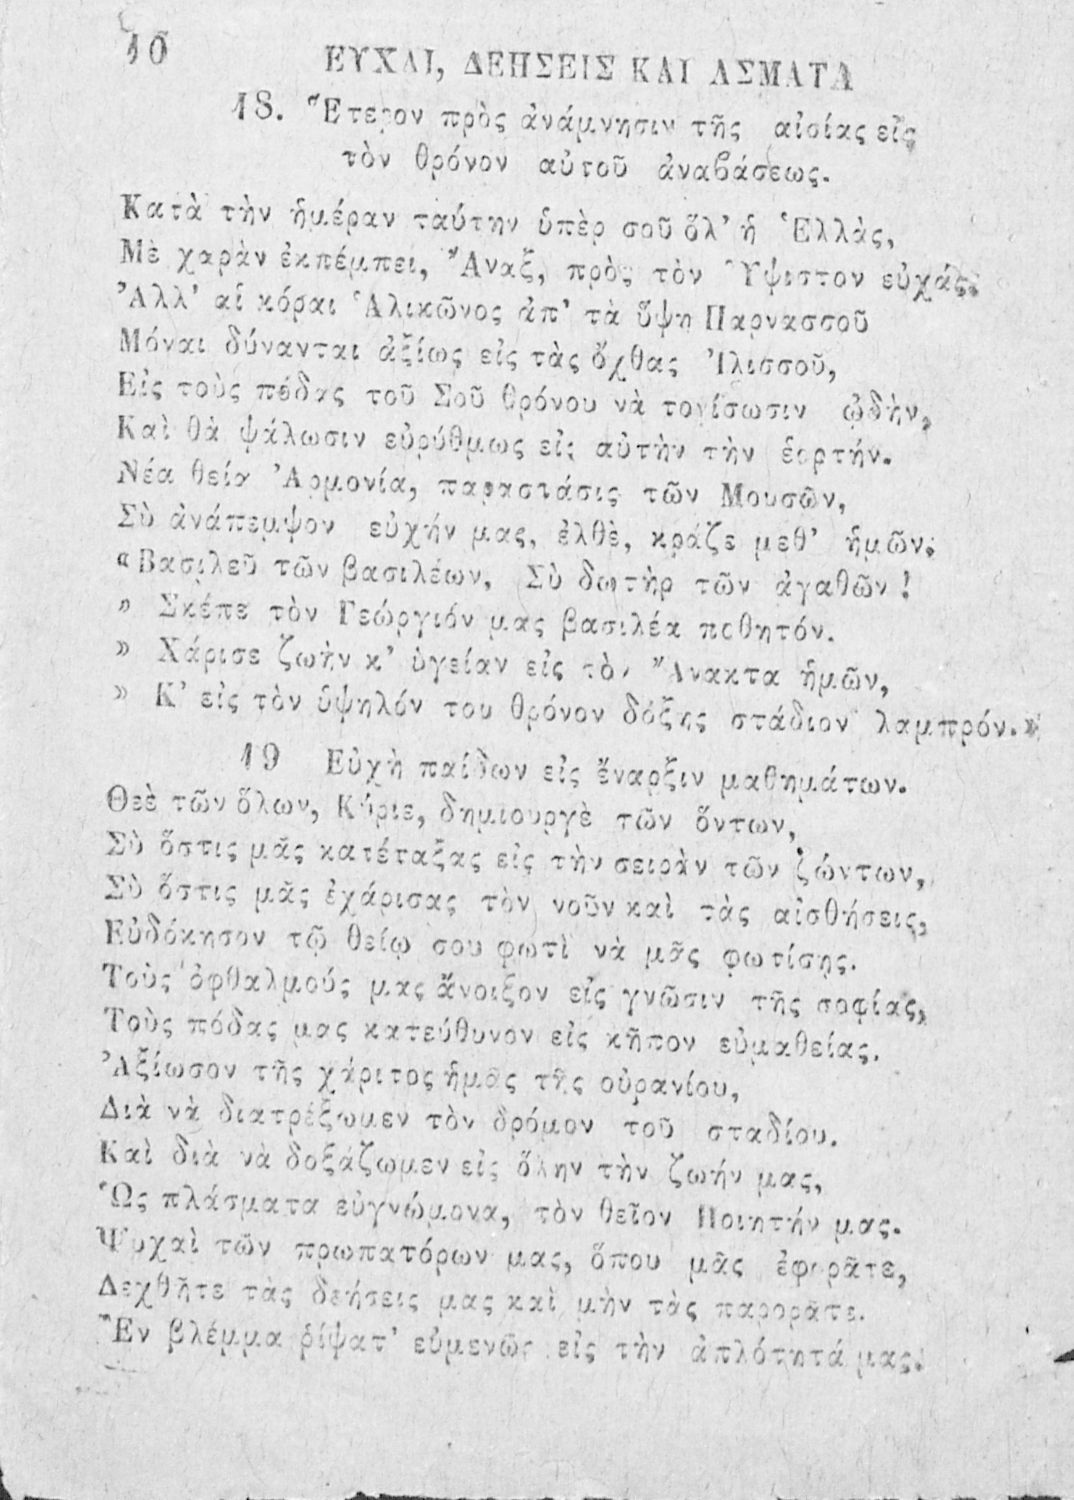 10
ΕΥΧΑΙ, ΔΕΗΣΕΙΣ ΚΑΙ ΑΣΜΑΤΑ
18. Ἕτερον πρὸς ἀνάμνησιν τῆς αἰσίας εἰς
τὸν θρόνον αὐτοῦ ἀναβάσεως.
Κατὰ τὴν ἡμέραν ταύτην ὑπὲρ σοῦ ὅλ' ἡ Ἑλλὰς,
Μὲ χαρὰν ἐκπέμπει, Ἄναξ, πρὸς τὸν Ὕψιστον εὐχάς.
Ἀλλ' αἱ κόραι Ἁλικῶνος ἀπ' τὰ ὕψη Παρνασσοῦ
Μόναι δύνανται ἀξίως εἰς τὰς ὄχθας Ἰλισσοῦ,
Εἰς τοὺς πόδας τοῦ Σοῦ θρόνου νὰ τονίσωσιν ᾠδὴν,
Καὶ θὰ ψάλωσιν εὐρύθμως εἰς αὐτὴν τὴν ἑορτήν.
Νέα θεία Ἁρμονία, παραστάσις τῶν Μουσῶν,
Σὺ ἀνάπεμψον εὐχήν μας, ἐλθὲ, κράζε μεθ' ἡμῶν.
« Βασιλεῦ τῶν βασιλέων, Σὺ δωτὴρ τῶν ἀγαθῶν !
» Σκέπε τὸν Γεώργιόν μας βασιλέα ποθητόν.
» Χάρισε ζωὴν κ' ὑγείαν εἰς τὸν Ἄνακτα ἡμῶν,
» Κ' εἰς τὸν ὑψηλόν του θρόνον δόξης στάδιον λαμπρόν.»
19 Εὐχὴ παίδων εἰς ἔναρξιν μαθημάτων.
Θεὲ τῶν ὅλων, Κύριε, δημιουργὲ τῶν ὄντων,
Σὺ ὅστις μᾶς κατέταξας εἰς τὴν σειρὰν τῶν ζώντων,
Σὺ ὅστις μᾶς ἐχάρισας τὸν νοῦν καὶ τὰς αἰσθήσεις,
Εὐδόκησον τῷ θείῳ σου φωτὶ νὰ μᾶς φωτίσῃς.
Τοὺς ὀφθαλμούς μας ἄνοιξον εἰς γνῶσιν τῆς σοφίας,
Τοὺς πόδας μας κατεύθυνον εἰς κῆπον εὐμαθείας.
Ἀξίωσον τῆς χάριτος ἡμᾶς τῆς οὐρανίου,
Διὰ νὰ διατρέξωμεν τὸν δρόμον τοῦ σταδίου.
Καὶ διὰ νὰ δοξάζωμεν εἰς ὅλην τὴν ζωήν μας,
Ὡς πλάσματα εὐγνώμονα, τὸν θεῖον Ποιητήν μας.
Ψυχαὶ τῶν πρωπατόρων μας, ὅπου μᾶς ἐφορᾶτε,
Δεχθῆτε τὰς δεήσεις μας καὶ μὴν τὰς παρορᾶτε.
Ἓν βλέμμα ῥίψατ' εὐμενῶς εἰς τὴν ἁπλότητά μας.